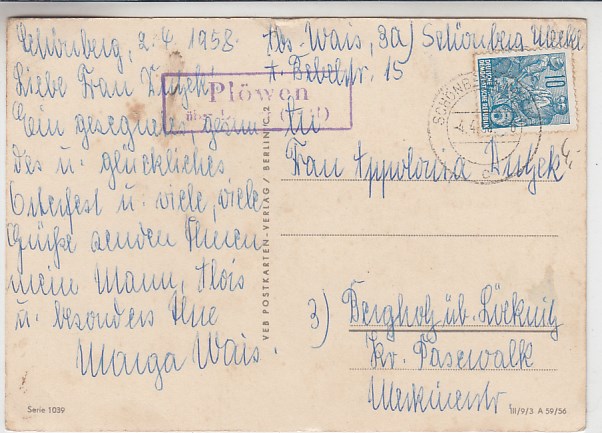 Schönberg, 2.4.1958.
Liebe Frau Dutjek!
Ein gesegnetes, gesun-
des u. glückliches
Osterfest u. viele, viele
Grüße senden Ihnen
mein Mann, Alois
u. besonders Ihre
Marga Wais.
Abs. Wais, 3a) Schönberg Meckl.
A. Bebelstr. 15
Plöwen
über
SCHÖNBERG
DEUTSCHE DEMOKRATISCHE REPUBLIK
10
An
Frau Appolonia Dutjek
3) Bergholz üb. Löcknitz
Kr. Pasewalk
VEB POSTKARTEN-VERLAG / BERLIN C 2
Serie 1039
III/9/3 A 59/56